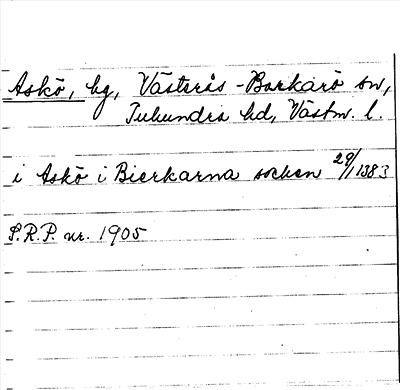 Askö, hg, Västerås-Barkarö sn,
Tuhundra hd, Västm. l.
i Askö i Bierkarna sochen 29/1 1383
S.R.P. nr. 1905